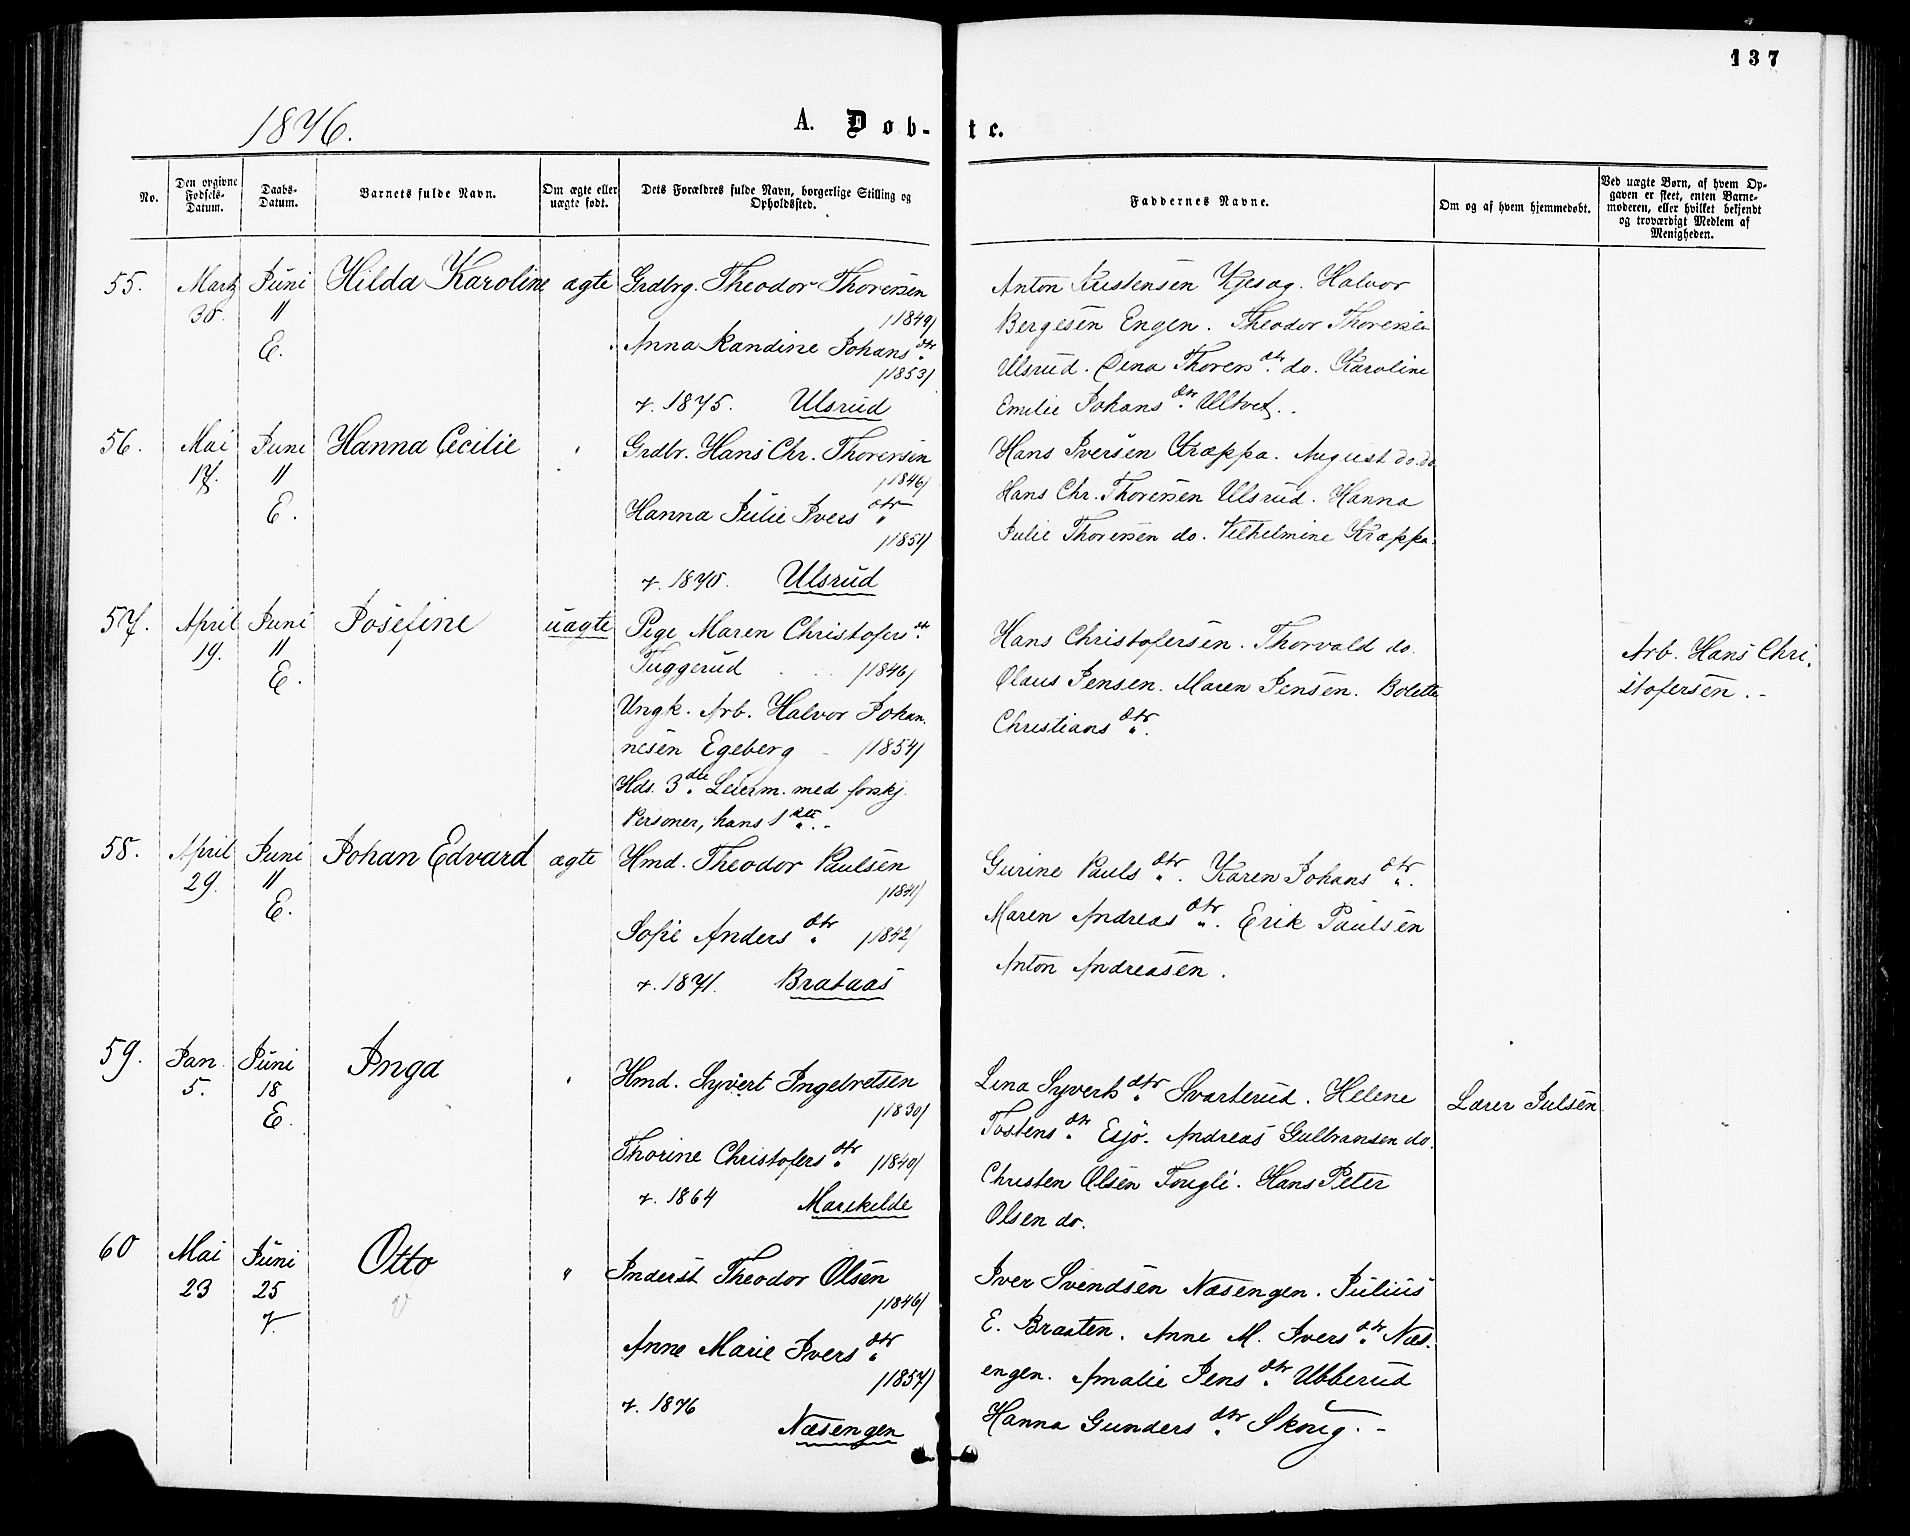 137
1876.
A. Døb-
te.
No.
Den opgivne Fødsels-Datum.
Daabs-Datum.
Barnets fulde Navn.
Om ægte eller uægte født.
Dets Forældres fulde Navn, borgerlige Stilling og Opholdssted.
Faddernes Navne.
Om og af hvem hjemmedøbt.
Ved uægte Børn, af hvem Op-
gaven er skeet, enten Barne-
moderen, eller hvilket bekjendt
og troværdigt Medlem af
Menigheden.
55. Marts Juni Hilda Karoline ægte Grdbrg. Theodor Thoresen
30. " /1849/
E. Anna Randine Johansdtr.
/1853/
v. 1875. Ulsrud
Anton Kristensen Kjesag. Halvor
Bergesen Engen. Theodor Thoresen
Ulsrud. Dina Thorersdtr. do. Karoline
Emilie Johansdtr. Ultvet.
56. Mai Juni Hanna Cecilie " Grdbr. Hans Chr. Thoresen
17. " /1846/
E. Hanna Julie Iversdtr.
/1851/
v. 1870. Ulsrud
Hans Iversen Kræppa. August do. do.
Hans Chr. Thoresen Ulsrud. Hanna
Julie Thoresen do. Vilhelmine Kræppa.
57. April Juni Josefine uægte Pige Maren Christofersdt.
19. " Tuggerud /1846/
E. Ungk. Arb. Halvor Johan-
nesen Egeberg - /1854/
Hds. 3die Leierm. med forskj.
Personer, hans 1ste. -
Hans Christofersen. Thorvald do.
Olaus Jensen. Maren Jensen. Bolette
Christiansdtr.
Arb. Hans Chri-
stofersen. -
58. April Juni Johan Edvard ægte Hmd. Theodor Paulsen
29. " /1841/
E. Sofie Andersdtr. /1842/
v. 1871. Brataas
Gurine Paulsdtr. Karen Johansdtr.
Maren Andreasdtr. Erik Paulsen
Anton Andreasen.
59. Jan. Juni Inga " Hmd. Syvert Ingebretsen
5. 18 /1830/
E. Thorine Christofersdtr. /1840/
v. 1864 Marikelde
Lina Syvertsdtr. Svarterud. Helene
Tostensdtr. Esjø. Andreas Gulbransen do.
Christen Olsen Fougli. Hans Peter
Olsen do.
Lærer Julsen
60 Mai Juni Otto " Inderst Theodor Olsen
23 25 /1846/
v. Anne Marie Iversdtr.
/1857/
v. 1876
Næsengen
Iver Svendsen Næsengen. Julius
E. Braaten. Anne M. Iversdtr. Næs-
engen. Amalie Jensdtr. Ubberud
Hanna Gundersdtr. Skoug. -